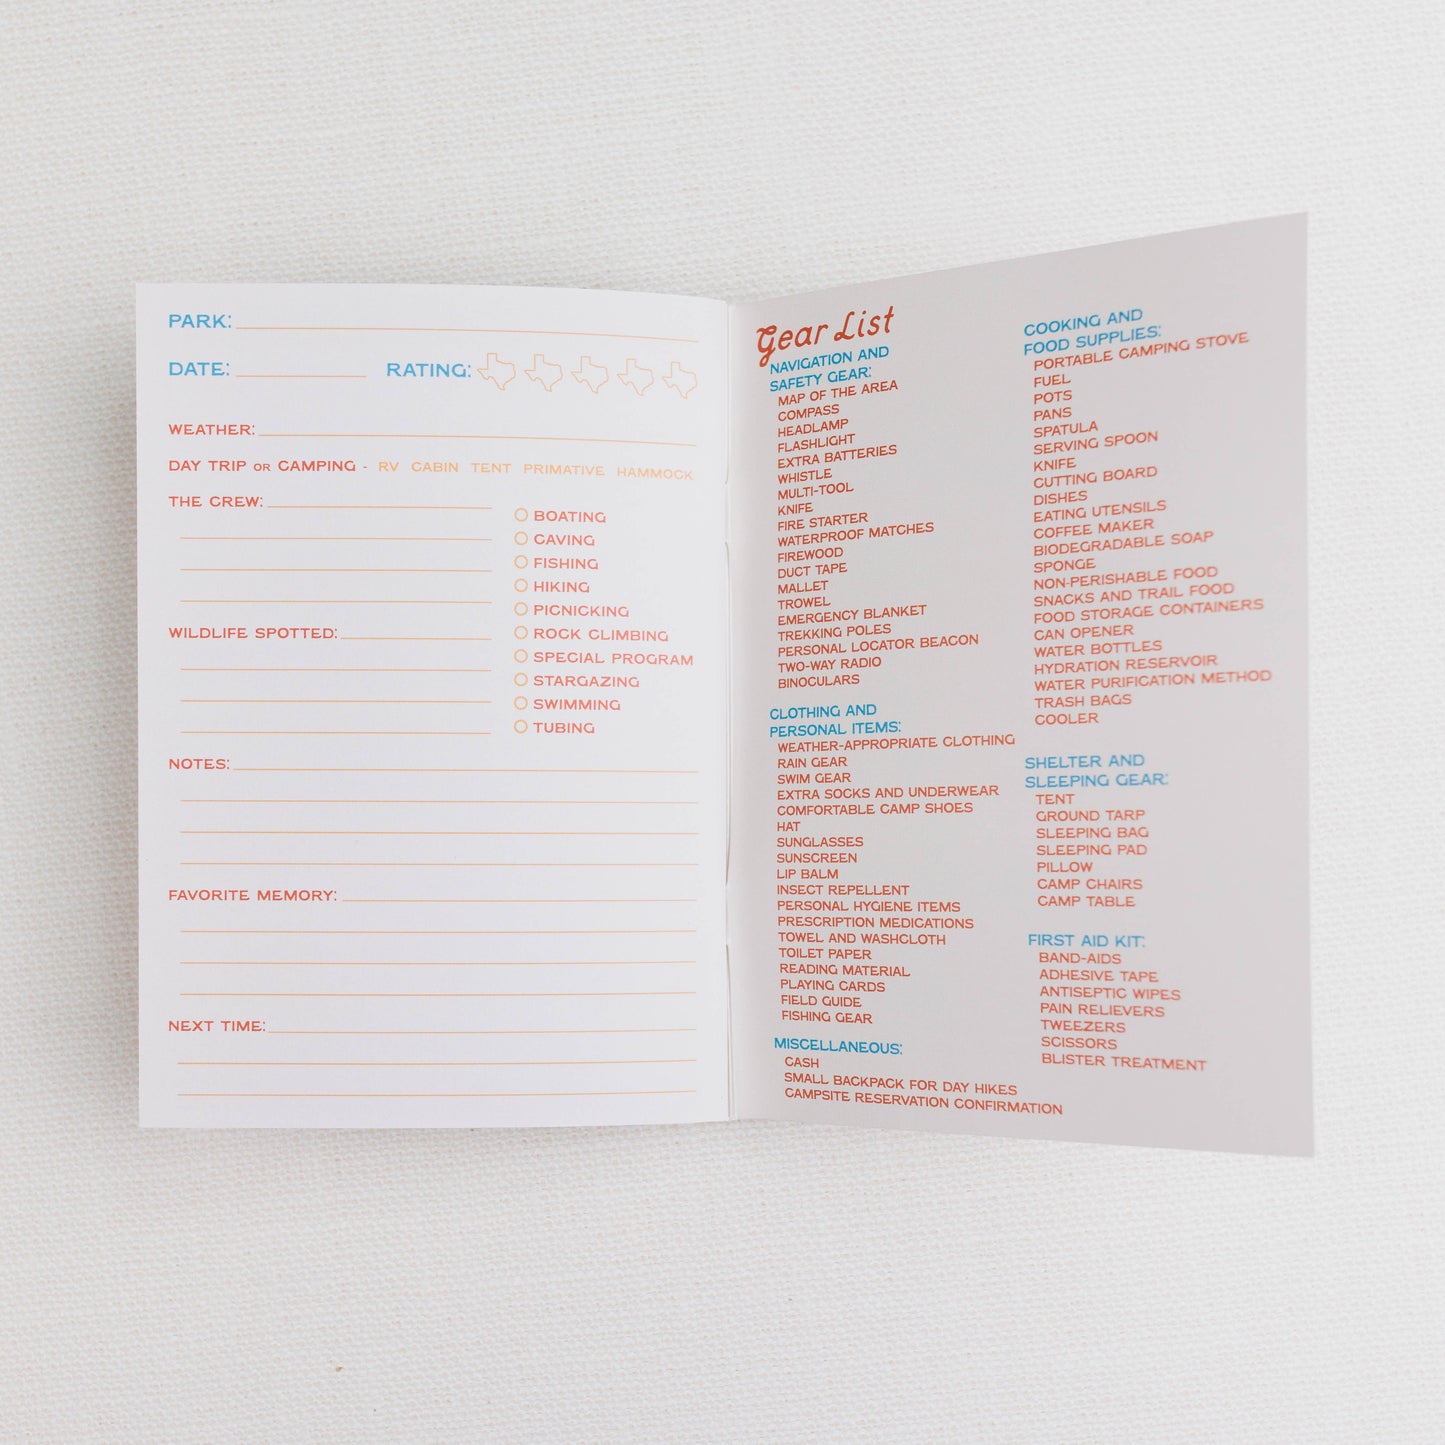 PARK:
DATE: RATING:
WEATHER:
DAY TRIP OR CAMPING - RV CABIN TENT PRIMATIVE HAMMOCK
THE CREW:
BOATING
CAVING
FISHING
HIKING
PICNICKING
WILDLIFE SPOTTED:
ROCK CLIMBING
SPECIAL PROGRAM
STARGAZING
SWIMMING
TUBING
NOTES:
FAVORITE MEMORY:
NEXT TIME:
Gear List
NAVIGATION AND
SAFETY GEAR:
MAP OF THE AREA
COMPASS
HEADLAMP
FLASHLIGHT
EXTRA BATTERIES
WHISTLE
MULTI-TOOL
KNIFE
FIRE STARTER
WATERPROOF MATCHES
FIREWOOD
DUCT TAPE
MALLET
TROWEL
EMERGENCY BLANKET
TREKKING POLES
PERSONAL LOCATOR BEACON
TWO-WAY RADIO
BINOCULARS
CLOTHING AND
PERSONAL ITEMS:
WEATHER-APPROPRIATE CLOTHING
RAIN GEAR
SWIM GEAR
EXTRA SOCKS AND UNDERWEAR
COMFORTABLE CAMP SHOES
HAT
SUNGLASSES
SUNSCREEN
LIP BALM
INSECT REPELLENT
PERSONAL HYGIENE ITEMS
PRESCRIPTION MEDICATIONS
TOWEL AND WASHCLOTH
TOILET PAPER
READING MATERIAL
PLAYING CARDS
FIELD GUIDE
FISHING GEAR
MISCELLANEOUS:
CASH
SMALL BACKPACK FOR DAY HIKES
CAMPSITE RESERVATION CONFIRMATION
COOKING AND
FOOD SUPPLIES:
PORTABLE CAMPING STOVE
FUEL
POTS
PANS
SPATULA
SERVING SPOON
KNIFE
CUTTING BOARD
DISHES
EATING UTENSILS
COFFEE MAKER
BIODEGRADABLE SOAP
SPONGE
NON-PERISHABLE FOOD
SNACKS AND TRAIL FOOD
FOOD STORAGE CONTAINERS
CAN OPENER
WATER BOTTLES
HYDRATION RESERVOIR
WATER PURIFICATION METHOD
TRASH BAGS
COOLER
SHELTER AND
SLEEPING GEAR:
TENT
GROUND TARP
SLEEPING BAG
SLEEPING PAD
PILLOW
CAMP CHAIRS
CAMP TABLE
FIRST AID KIT:
BAND-AIDS
ADHESIVE TAPE
ANTISEPTIC WIPES
PAIN RELIEVERS
TWEEZERS
SCISSORS
BLISTER TREATMENT